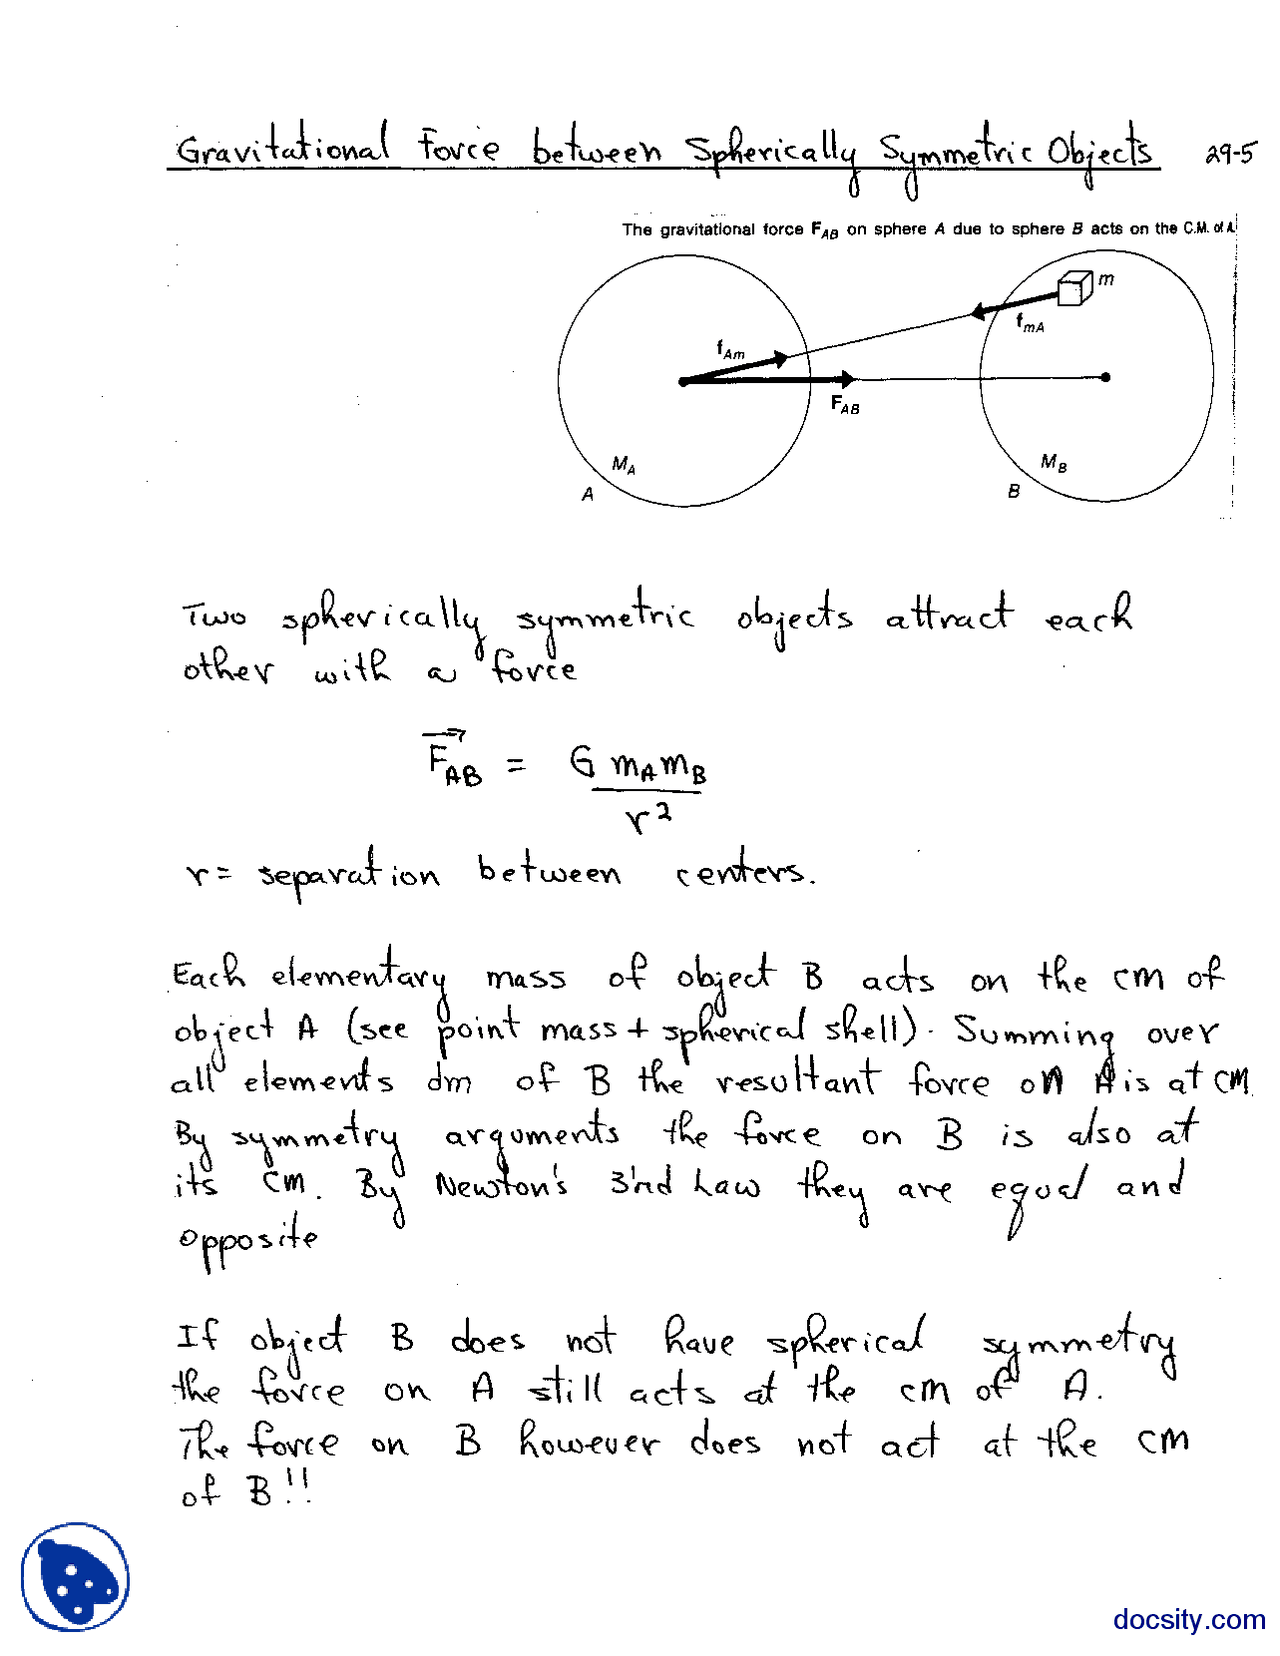 Gravitational Force between Spherically Symmetric Objects 29-5
The gravitational force F_AB on sphere A due to sphere B acts on the C.M. of A
m
f_mA
f_Am
F_AB
M_A
M_B
A
B
Two spherically symmetric objects attract each
other with a force
F_AB = G m_A m_B
r²
r = separation between centers.
Each elementary mass of object B acts on the cm of
object A (see point mass + spherical shell). Summing over
all elements dm of B the resultant force on A is at cm
By symmetry arguments the force on B is also at
its cm. By Newton's 3'rd Law they are equal and
opposite
If object B does not have spherical symmetry
the force on A still acts at the cm of A.
The force on B however does not act at the cm
of B!!
docsity.com